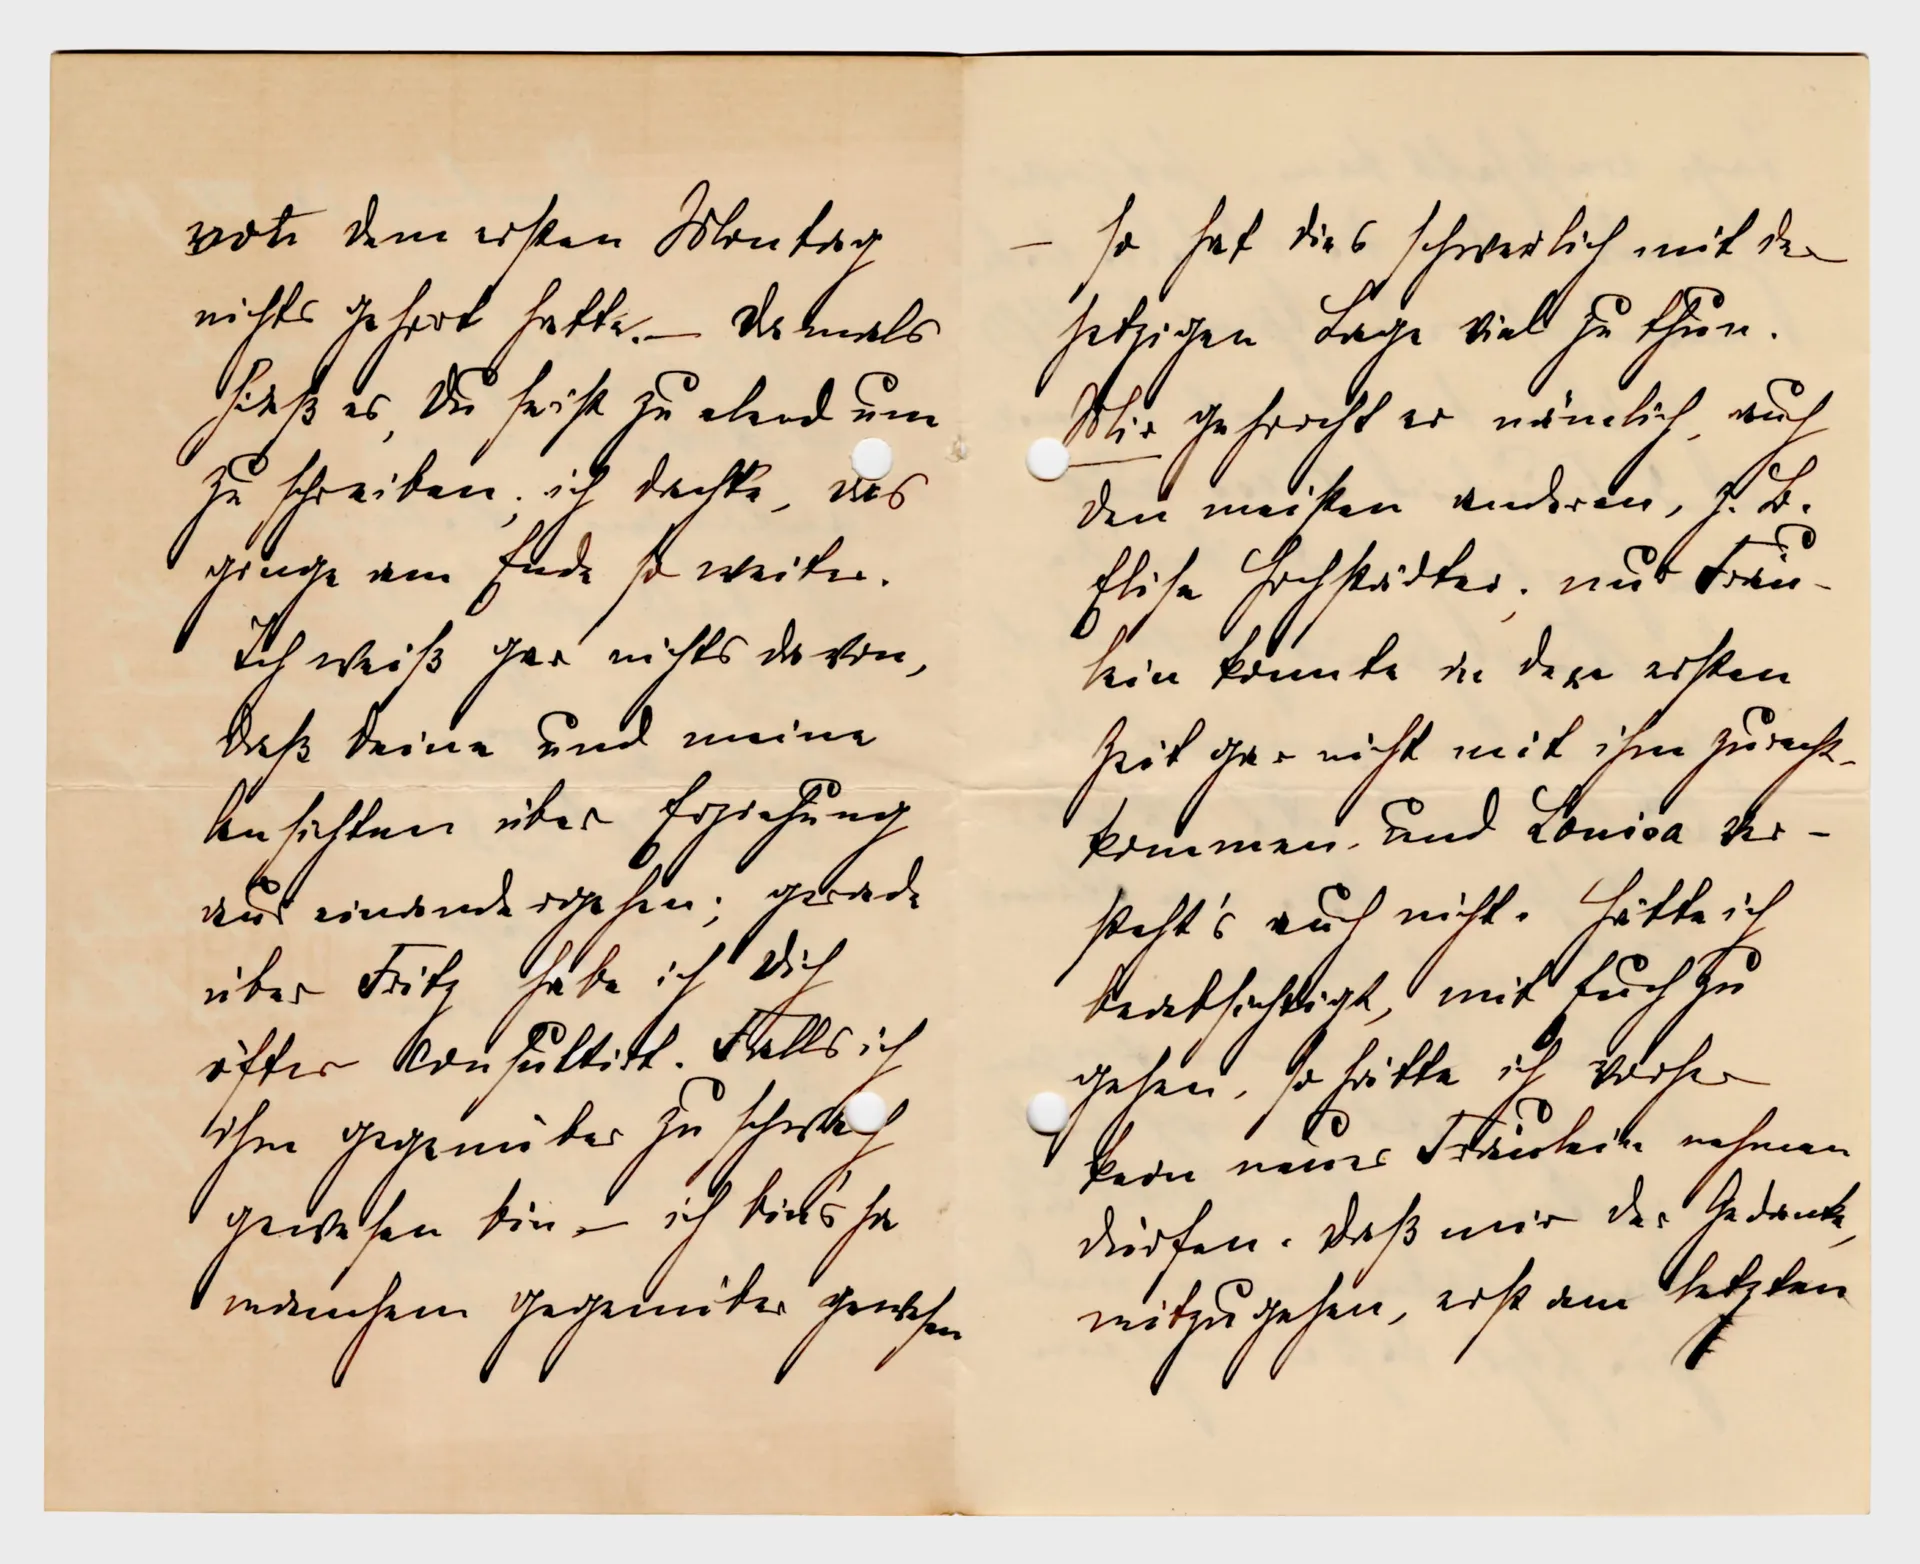 von dem ersten Montag
nichts gehört hatte. — Damals
hieß es, Du seist zu elend um
zu schreiben; ich dachte, das
ginge am Ende so weiter.
Ich weiß gar nichts davon,
daß Deine und meine
Ansichten über Erziehung
auseinandergehen; gerade
über Fritz habe ich Dich
öfter consultirt. Falls ich
ihm gegenüber zu schwach
gewesen bin — ich bin's ja
manchem gegenüber gewesen
— so hat dies schwerlich mit der
jetzigen Lage viel zu thun.
Mir gehorcht er nämlich, auch
den meisten anderen, z. B.
Elise Hochstädter; nur Fräu-
lein konnte in der ersten
Zeit gar nicht mit ihm zurecht-
kommen. und Louisa ver-
steht's auch nicht. Hätte ich
beabsichtigt, mit Euch zu
gehen, so hätte ich vorher
kein neues Fräulein nehmen
dürfen. Daß mir der Gedanke,
mitzugehen, erst am letzten